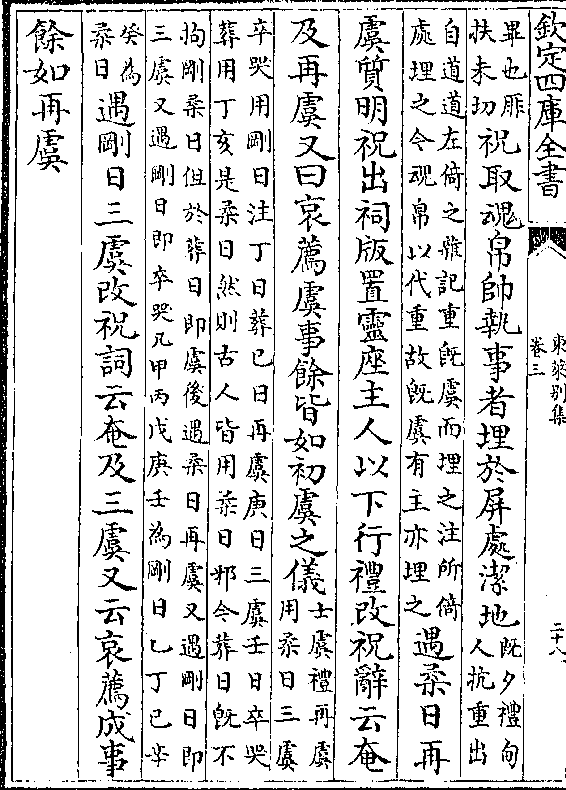 欽定四庫全書
東萊別集
卷三
二十八
畢也腓
扶未切
祝取魂帛帥執事者埋於屏處潔地
既夕禮甸
人抗重出
自道道左倚之雜記重既虞而埋之注所倚
處埋之令魂帛以代重故既虞有主亦埋之
遇柔日再
虞質明祝出祠版置靈座主人以下行禮改祝辭云奄
及再虞又曰哀薦虞事餘皆如初虞之儀
士虞禮再虞
用柔日三虞
卒哭用剛日注丁日葬巳日再虞庚日三虞壬日卒哭
葬用丁亥是柔日然則古人皆用柔日邪今葬日既不
拘剛柔日但於葬日即虞後遇柔日再虞又遇剛日即
三虞又遇剛日即卒哭凡甲丙戊庚壬為剛日乙丁巳辛
癸為
柔日
遇剛日三虞改祝詞云奄及三虞又云哀薦成事
餘如再虞